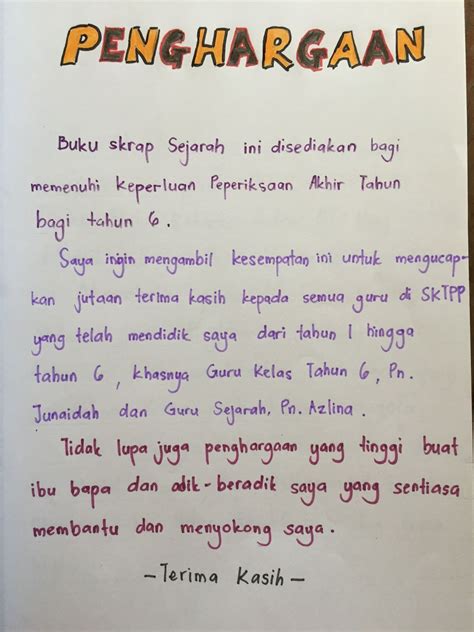 PENGHARGAAN
Buku skrap Sejarah ini disediakan bagi
memenuhi keperluan Peperiksaan Akhir Tahun
bagi tahun 6.
Saya ingin mengambil kesempatan ini untuk mengucap-
kan jutaan terima kasih kepada semua guru di SKTPP
yang telah mendidik saya dari tahun 1 hingga
tahun 6, khasnya Guru Kelas Tahun 6, Pn.
Junaidah dan Guru Sejarah, Pn. Azlina.
Tidak lupa juga penghargaan yang tinggi buat
ibu bapa dan adik-beradik saya yang sentiasa
membantu dan menyokong saya.
-Terima Kasih-